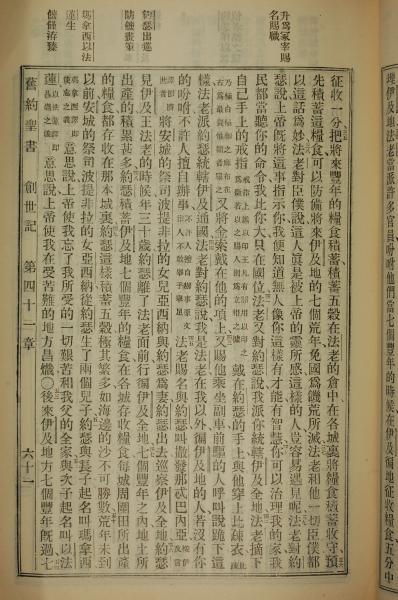 理伊及地法老當派許多官員吩咐他們當七個豐年的時候在伊及徧地徵收糧食五分中
升爲冢宰賜
名賜職
征收一分把將來豐年的糧食積蓄積蓄五穀在法老的倉中在各城裏將糧食積蓄收守預
先積蓄這糧食可以防備將來伊及地的七個荒年免國爲饑荒所滅法老和他一切臣僕都
以這話爲妙法老對臣僕說這人眞是被上帝的靈所感這樣的人豈容易遇見呢法老對約
瑟說上帝旣將這事指示你我便知道無人像你這樣有才能有智慧你可以治理我的家我
民都當聽你的命令我比你大只在國位法老又對約瑟說我派你統轄伊及全地法老摘下
自己手上的戒指 戴在約瑟的手上與他穿上比疎衣
又將金索戴在他的項上又賜他乘坐副車前驅的人呼叫說跪下這
樣法老派約瑟統轄伊及通國法老對約瑟說我是法老在我以外徧伊及地的人若沒有你
的吩咐不許人擅自辦事 法老賜名與約瑟叫撒發那忒巴內亞
約瑟出巡
防饑蓄策
將安城的祭司波提非拉的女兒亞西納與約瑟爲妻約瑟出去巡察伊及全地約瑟
見伊及王法老的時候年三十歲約瑟離了法老面前行徧伊及全地七個豐年之內地土所
出產的積聚甚多約瑟積蓄伊及地七個豐年的糧食在各城存收糧食每城周圍田所出產
的糧食都存收在那本城裏約瑟這樣積蓄五穀極其繁多如海邊的沙不可勝數荒年未到
瑪拿西以法
蓮生
以前安城的祭司波提非拉的女兒亞西納從約瑟生了兩個兒子約瑟與長子起名叫瑪拿西
意思說上帝使我忘了我所受的一切艱苦和我父的全家與次子起名叫以法
饑饉洊臻
蓮 意思說上帝使我在受苦難的地方昌熾○後來伊及地方七個豐年旣過七
舊約聖書 創世記 第四十一章 六十一